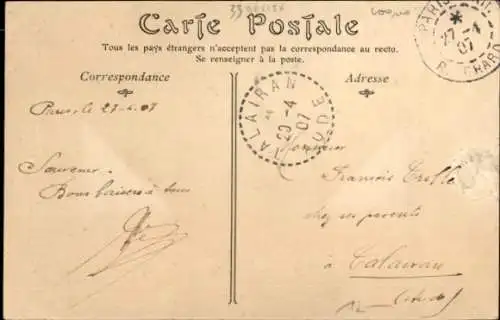 Carte Postale
Tous les pays étrangers n'acceptent pas la correspondance au recto.
Se renseigner à la poste.
Correspondance
Adresse
Paris, le 27-4-07
Souvenir
Bons baisers à tous
PARIS
27-4
07
TALAIRAN
29-4
07
AUDE
Monsieur
François
chez ses parents
à Talairan
(Aude)